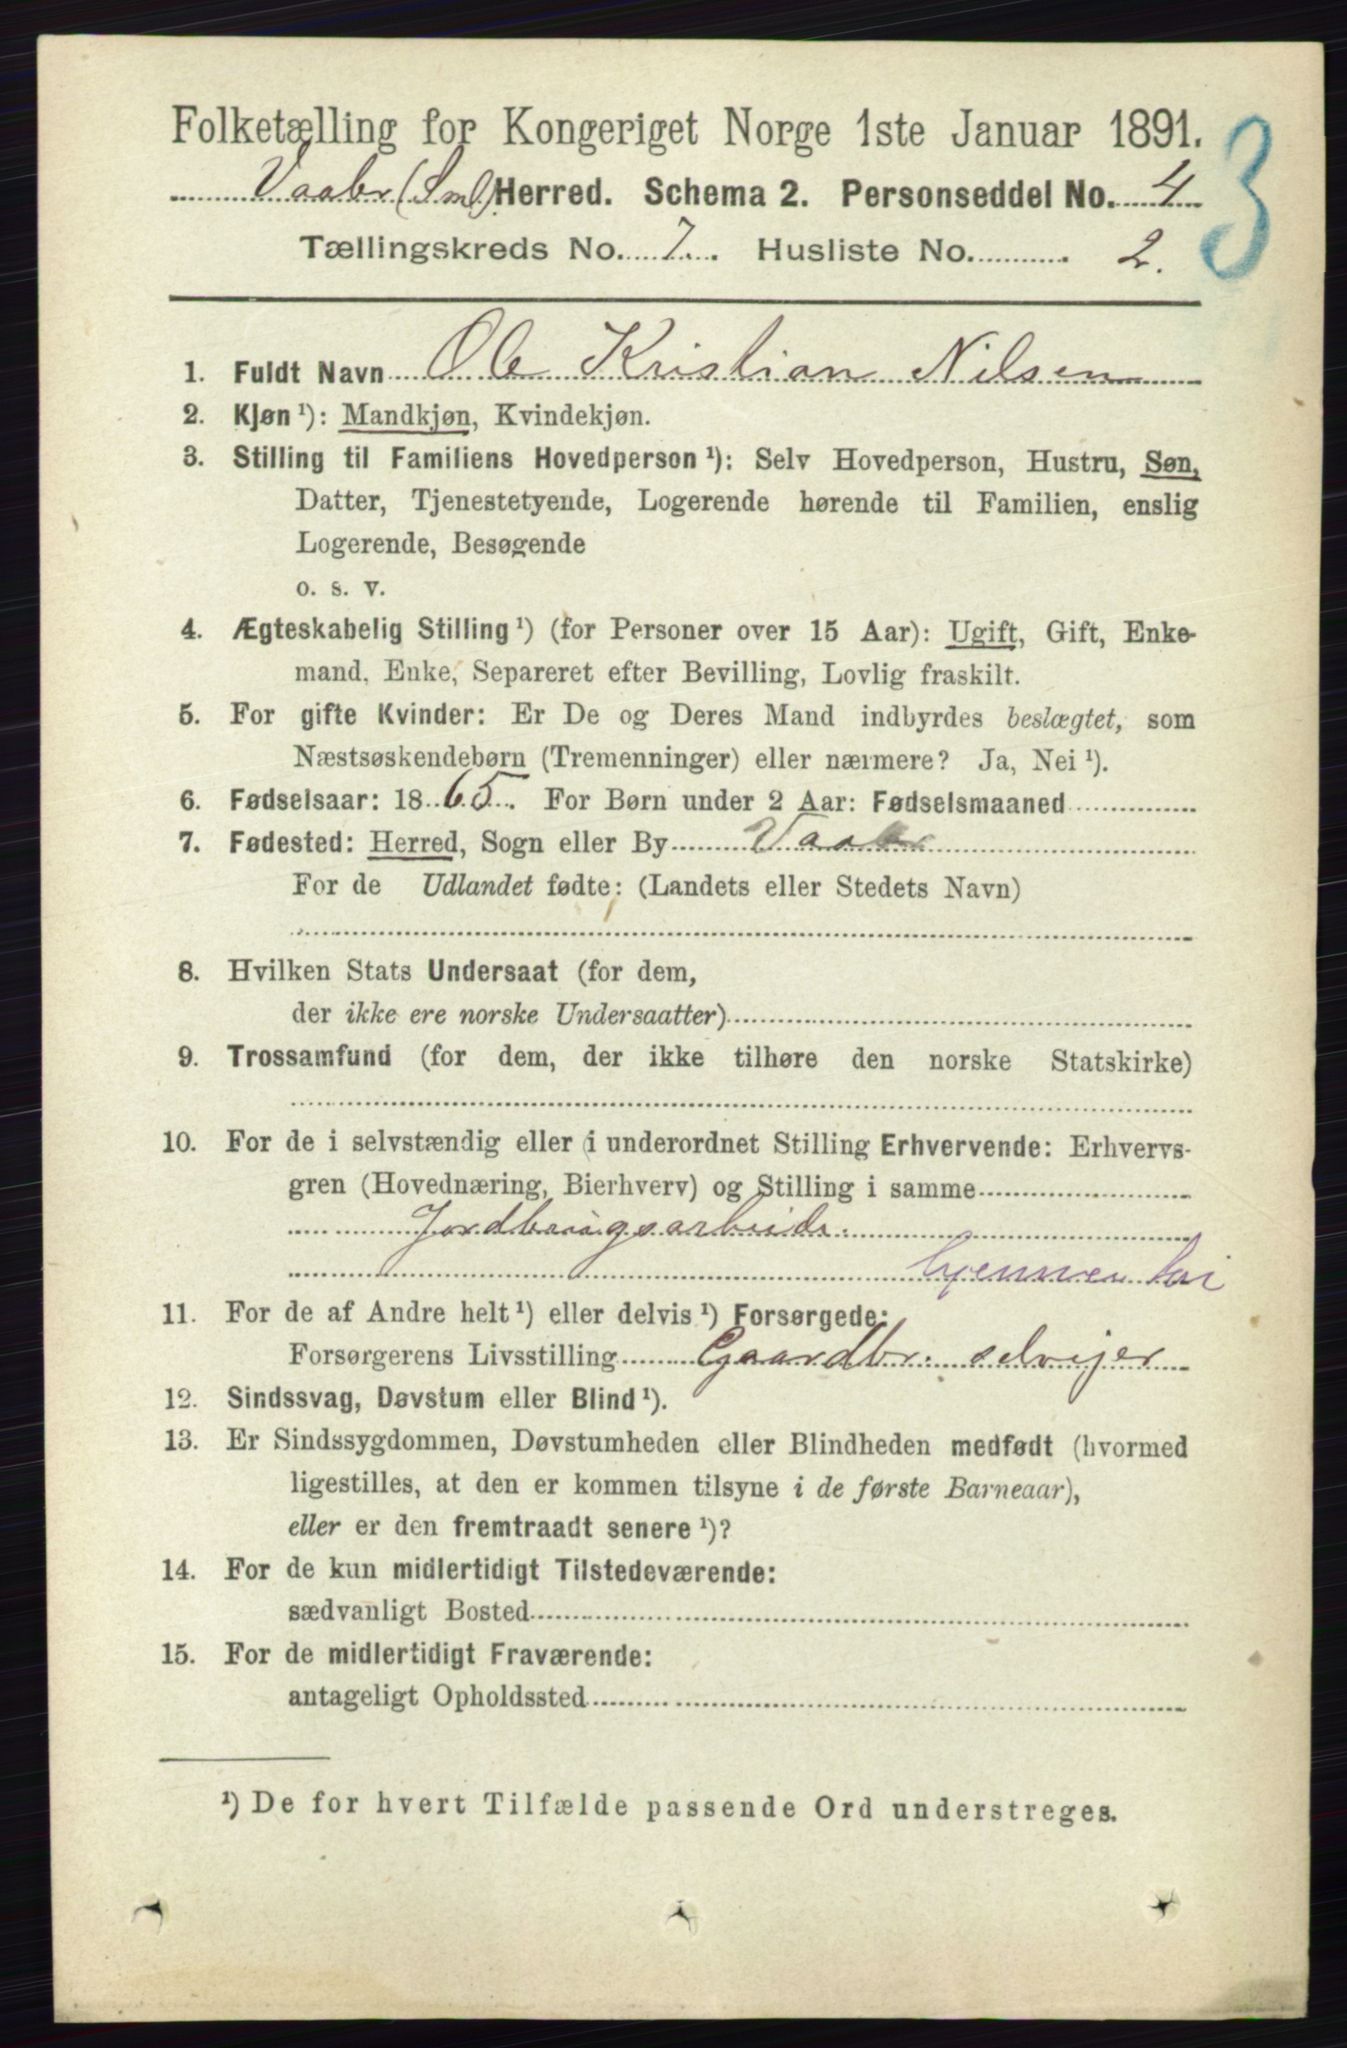 Folketælling for Kongeriget Norge 1ste Januar 1891.
3
Vaaler (Sml) Herred. Schema 2. Personseddel No. 4
Tællingskreds No. 7. Husliste No. 2.
1. Fuldt Navn Ole Kristian Nilsen
2. Kjøn ¹): Mandkjøn, Kvindekjøn.
3. Stilling til Familiens Hovedperson ¹): Selv Hovedperson, Hustru, Søn,
Datter, Tjenestetyende, Logerende hørende til Familien, enslig
Logerende, Besøgende
o. s. v.
4. Ægteskabelig Stilling ¹) (for Personer over 15 Aar): Ugift, Gift, Enke-
mand, Enke, Separeret efter Bevilling, Lovlig fraskilt.
5. For gifte Kvinder: Er De og Deres Mand indbyrdes beslægtet, som
Næstsøskendebørn (Tremenninger) eller nærmere? Ja, Nei ¹).
6. Fødselsaar: 1865. For Børn under 2 Aar: Fødselsmaaned
7. Fødested: Herred, Sogn eller By Vaaler
For de Udlandet fødte: (Landets eller Stedets Navn)
8. Hvilken Stats Undersaat (for dem,
der ikke ere norske Undersaatter)
9. Trossamfund (for dem, der ikke tilhøre den norske Statskirke)
10. For de i selvstændig eller i underordnet Stilling Erhvervende: Erhvervs-
gren (Hovednæring, Bierhverv) og Stilling i samme
Jordbrugsarbeide.
hjemme
11. For de af Andre helt ¹) eller delvis ¹) Forsørgede:
Forsørgerens Livsstilling Gaardbr. selveier
12. Sindssvag, Døvstum eller Blind ¹).
13. Er Sindssygdommen, Døvstumheden eller Blindheden medfødt (hvormed
ligestilles, at den er kommen tilsyne i de første Barneaar),
eller er den fremtraadt senere ¹)?
14. For de kun midlertidigt Tilstedeværende:
sædvanligt Bosted
15. For de midlertidigt Fraværende:
antageligt Opholdssted
¹) De for hvert Tilfælde passende Ord understreges.